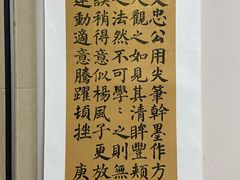 文忠公用尖筆幹墨作方
人觀之如見其清眸豐頰
之法然不可學〻之則無
謨稍得意似楊風子更放
運動適意騰躍頓挫 庚